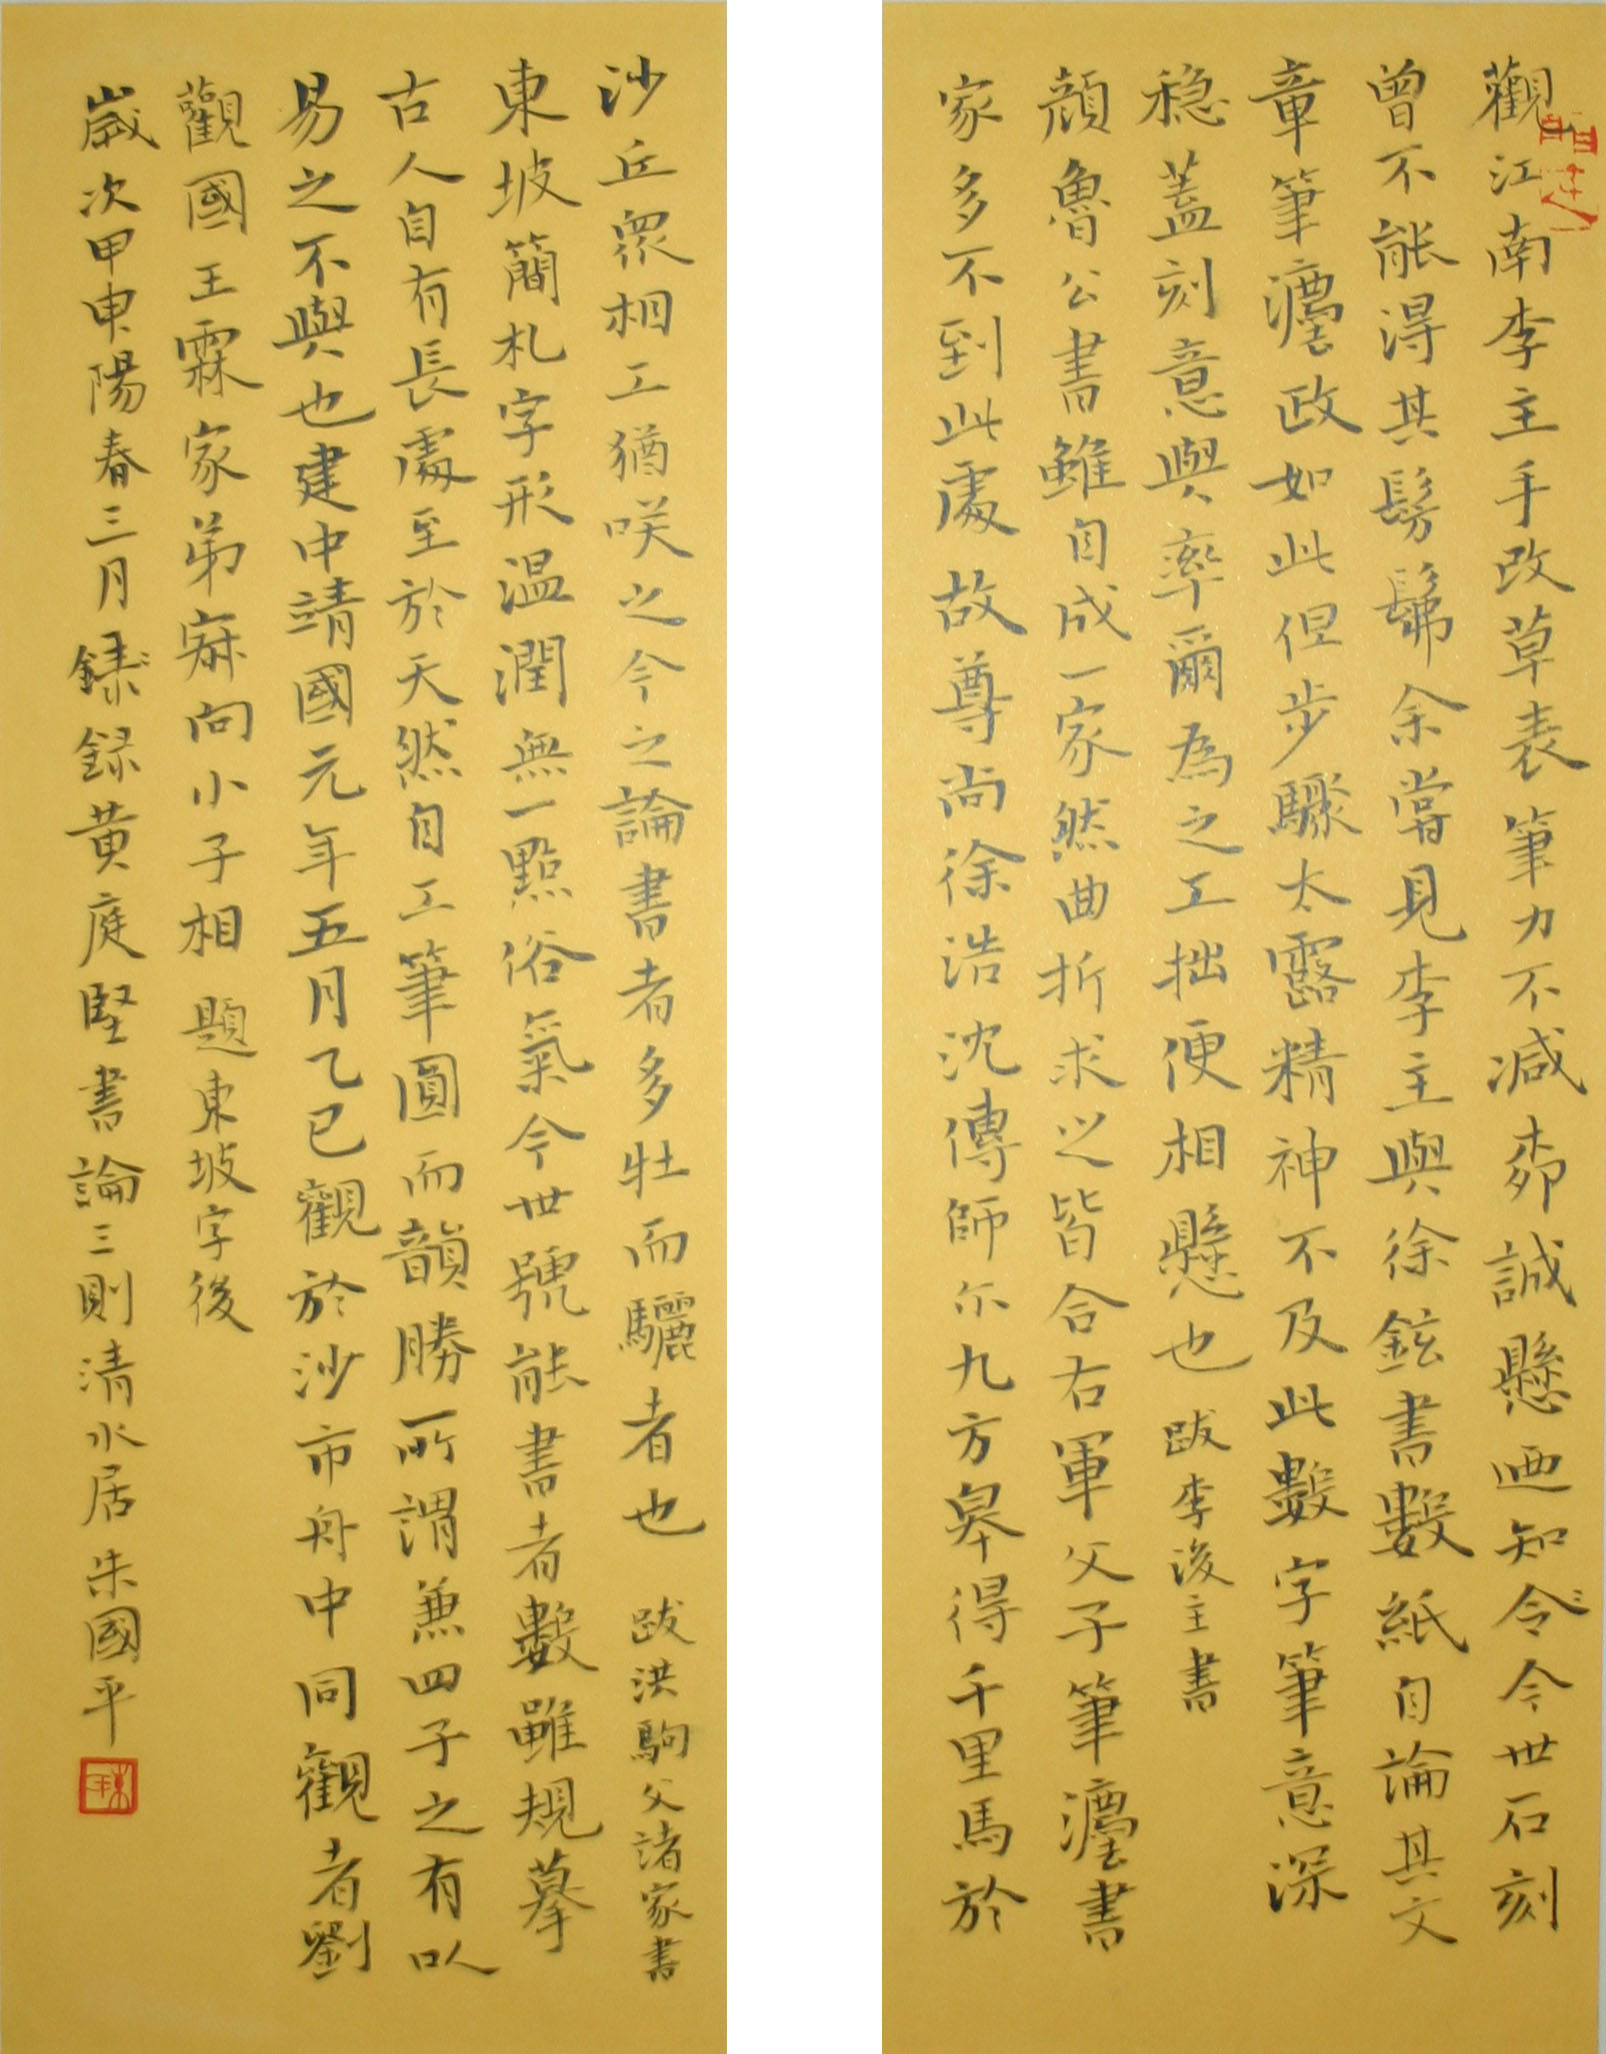 觀江南李主手改草表筆力不減柳誠懸迺知令今世石刻
曾不能得其髣髴余嘗見李主與徐鉉書數紙自論其文
章筆灋政如此但步驟太露精神不及此數字筆意深
穏蓋刻意與率爾為之工拙便相懸也 跋李後主書
顔魯公書雖自成一家然曲折求之皆合右軍父子筆灋書
家多不到此處故尊尚徐浩沈傳師尓九方皋得千里馬於
沙丘眾相工猶咲之今之論書者多牡而驪者也 跋洪駒父諸家書
東坡簡札字形温潤無一點俗氣今世號能書者數雖規摹
古人自有長處至於天然自工筆圓而韻勝所謂兼四子之有以
易之不與也建中靖國元年五月乙巳觀於沙市舟中同觀者劉
觀國王霖家弟寐向小子相 題東坡字後
歲次甲申陽春三月録録黄庭堅書論三則清水居朱國平